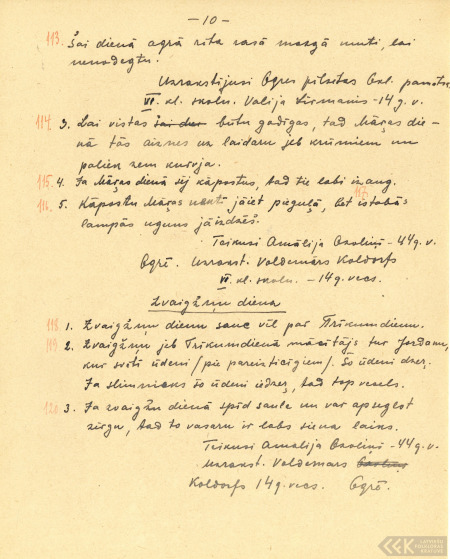 — 10 —
113. Šai dienā agrā rīta rasā mazgā muti, lai
nenodegtu.
Uzrakstījusi Ogres pilsētas Oxl. pamatsk.
VI. kl. skoln. Valija Sirmanis - 14 g. v.
114. 3. Lai vistas šai dien būtu gadīgas, tad Māras die-
nā tās aiznes uz laidaru jeb krūmiem un
paliek zem kurvja.
115. 4. Ja Māras dienā sēj kāpostus, tad tie labi izaug.
116. 5. Kāpostu Māras naktī jāiet pieguļā, bet istabās 117.
lampās uguns jāizdzēš.
Teikusi Amālija Ozoliņ - 44 g. v.
Ogrē. Uzrakst. Voldemārs Koldorfs
VI. kl. skoln. - 14 g. vecs.
Zvaigžņu diena
118 1. Zvaigžņu dienu sauc vēl par Trīkundienu.
119 2. Zvaigžņu jeb Trīkundienā mācītājs tur Jordanu,
kur svētī ūdeni /pie pareizticīgiem/. Šo ūdeni dzer.
Ja slimnieks šo ūdeni iedzer, tad top vesels.
120 3. Ja zvaigžņu dienā spīd saule un var apseglot
zirgu, tad to vasaru ir labs siena laiks.
Teikusi Amālija Ozoliņ - 44 g. v.
Uzrakst. Voldemārs
Koldorfs 14 g. vecs. Ogrē.
LATVIEŠU FOLKLORAS KRĀTUVE